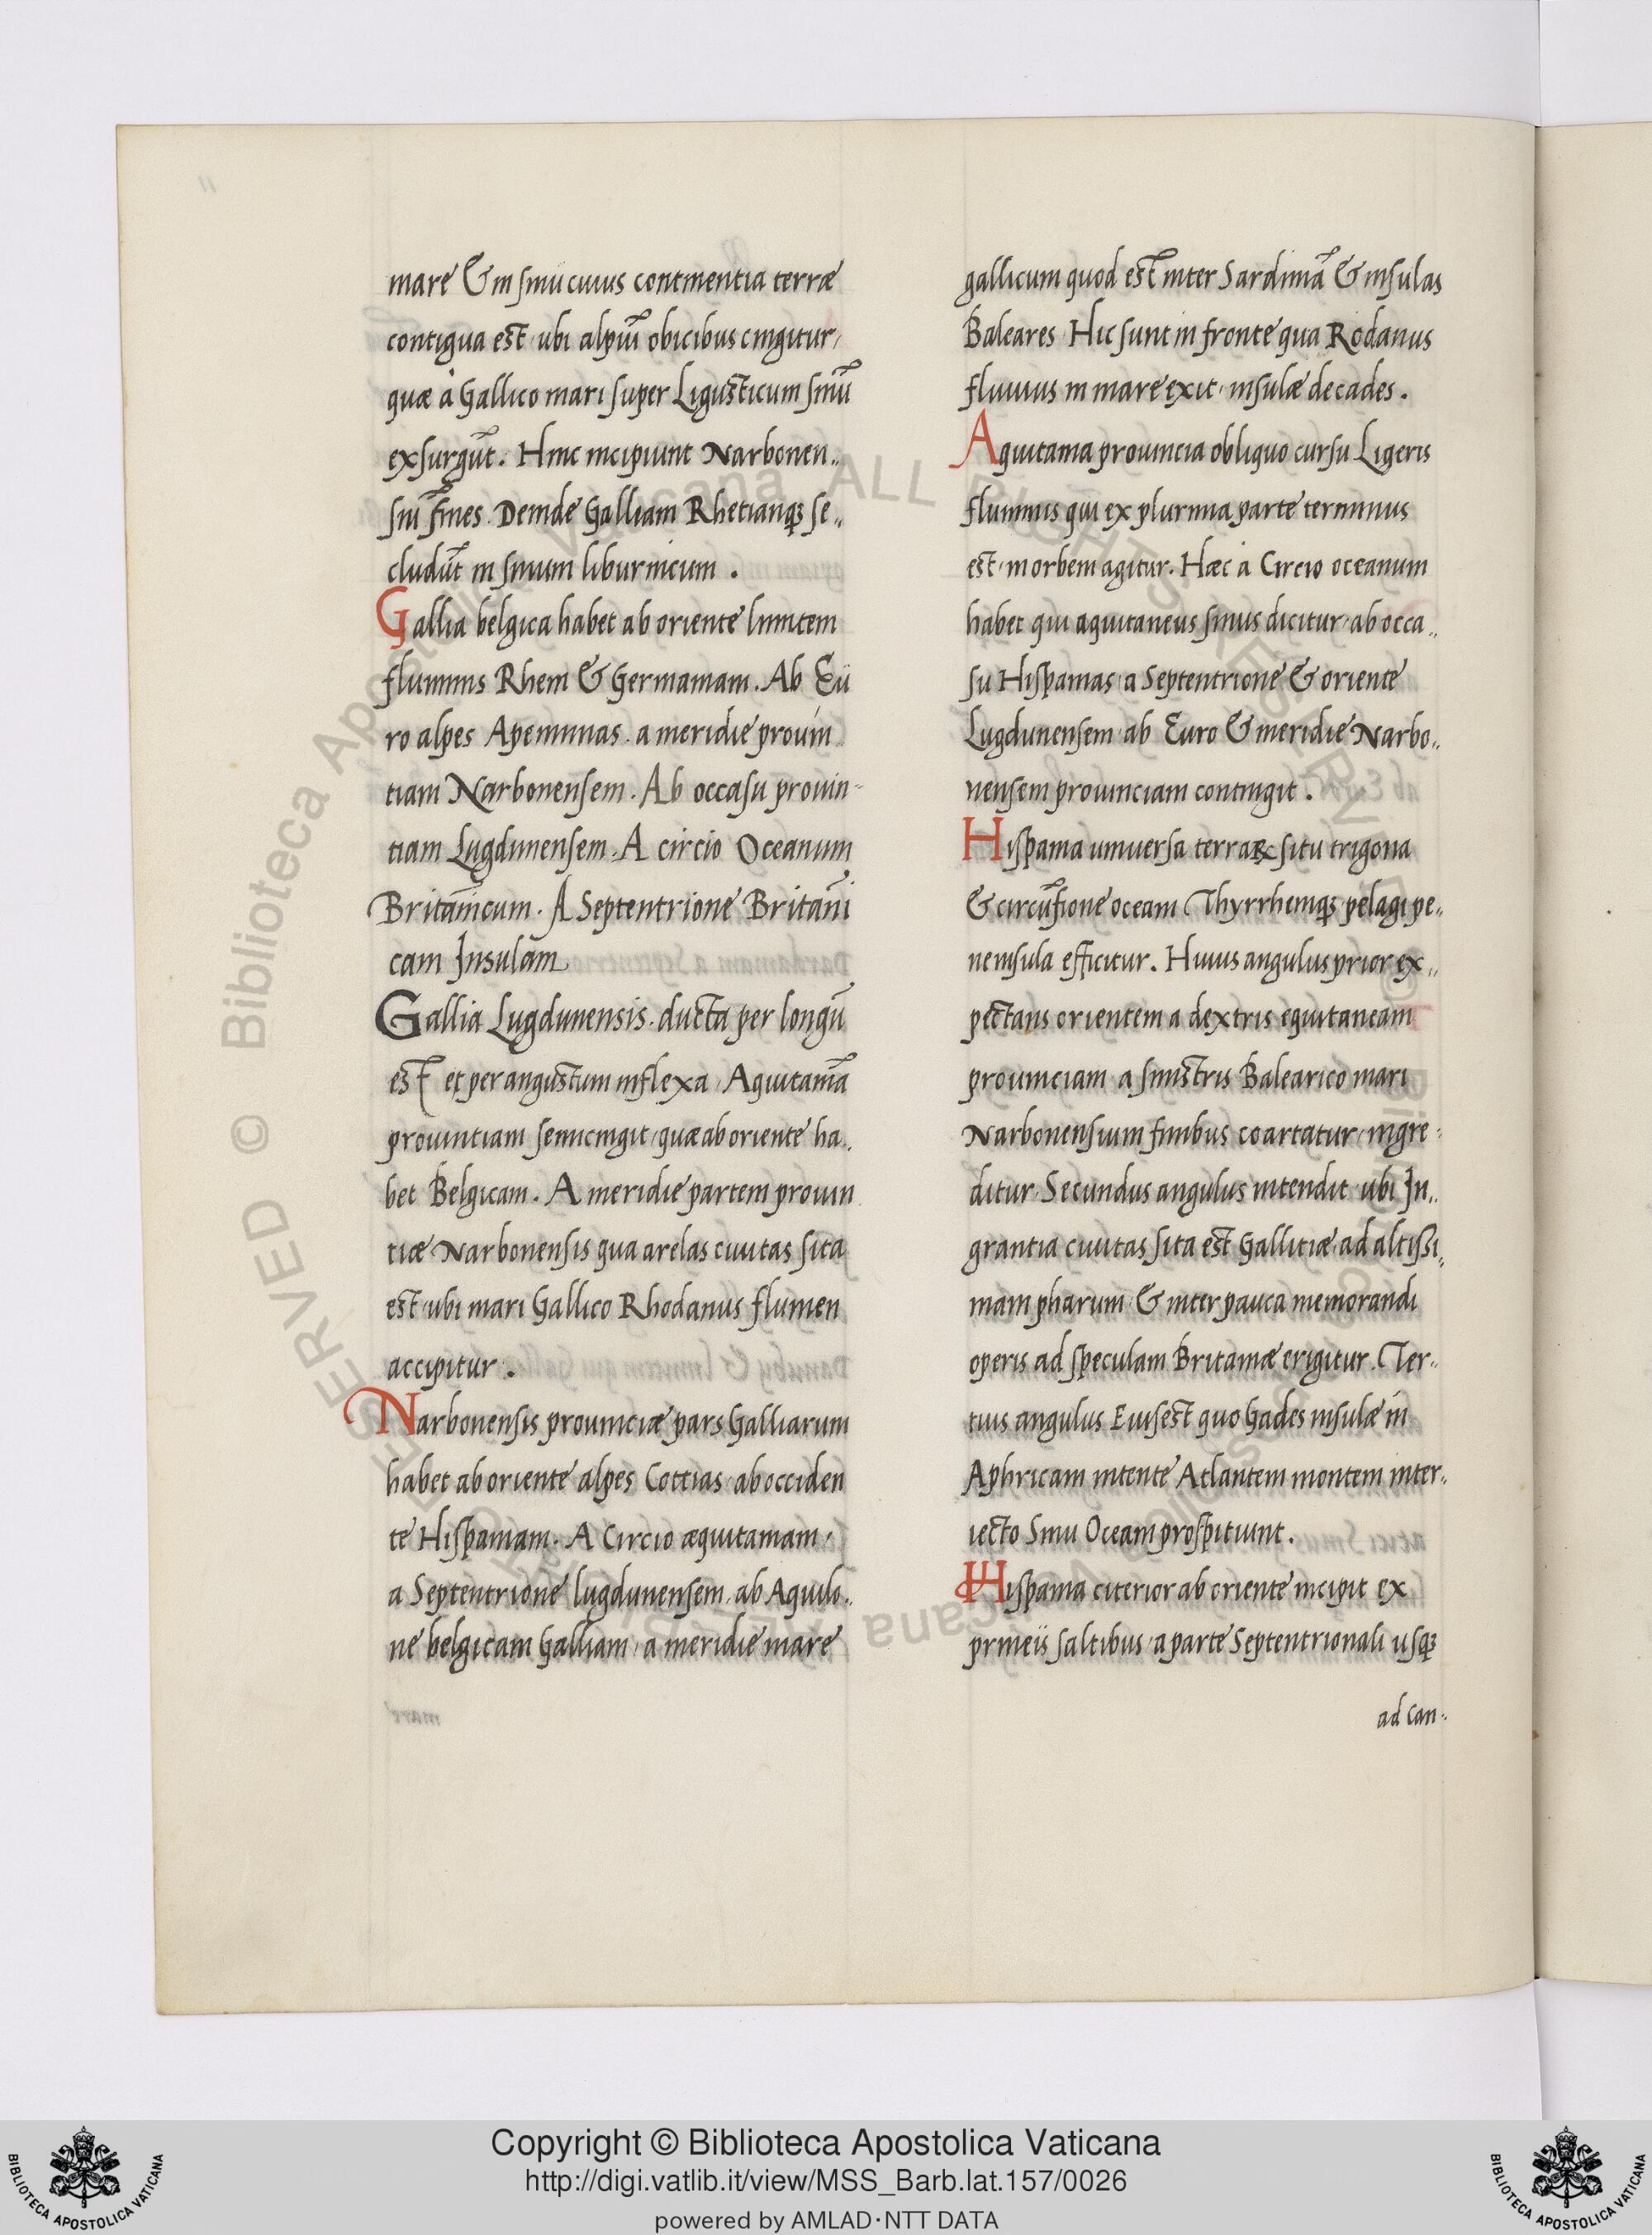 mare & in sinu cuius continentia terræ
contigua est ubi alpiũ obicibus cingitur,
quæ à Gallico mari super Ligusticum sinũ
exsurgũt. Hinc incipiunt Narbonen„
siũ fines. Deinde Galliam Rhetianq; se„
cludũt in sinum liburnicum.
Gallia belgica habet ab oriente limitem
fluminis Rheni & Germaniam. Ab Eu
ro alpes Apeninnas. a meridie prouin
tiam Narbonensem. Ab occasu prouin-
tiam Lugdunensem. A circio Oceanum
Britañicum. A Septentrione Britañi
cam Insulam
Gallia Lugdunensis. ducta per longũ
est et per angustum inflexa, Aquitaniã
prouintiam semicingit, quæ ab oriente ha„
bet Belgicam. A meridie partem prouin
tiæ Narbonensis qua arelas ciuitas sita
est, ubi mari Gallico Rhodanus flumen
accipitur.
Narbonensis prouinciæ pars Galliarum
habet ab oriente alpes Cottias, ab occiden
te Hispaniam. A Circio æquitaniam,
a Septentrione lugdunensem, ab Aquilo„
ne belgicam Galliam, a meridie mare
gallicum quod est inter Sardiniã & insulas
Baleares. Hic sunt in fronte qua Rodanus
fluuius in mare exit, insulæ decades.
Aquitania prouincia obliquo cursu Ligeris
fluminis qui ex plurima parte terminus
est, in orbem agitur. Hæc à Circio oceanum
habet qui aquitaneus sinus dicitur, ab occa„
su Hispanias, a Septentrione & oriente
Lugdunensem, ab Euro & meridie Narbo„
nensem prouinciam contingit.
Hispania uniuersa terraꝝ situ trigona
& circũfione oceani Thyrrheniq; pelagi pe„
neinsula efficitur. Huius angulus prior ex„
pectans orientem a dextris equitaneam
prouinciam, a sinistris Balearico mari
Narbonensium finibus coartatur, ingre-
ditur. Secundus angulus intendit, ubi In„
grantia ciuitas sita est Gallitiæ, ad altissi„
mam pharum, & inter pauca memorandi
operis ad speculam Britaniæ erigitur. Ter„
tius angulus Eius est quo Gades insulæ in
Aphricam intente Atlantem montem inter„
iecto Sinu Oceani prospitiunt.
Hispania citerior ab oriente incipit ex
prineis saltibus, a parte Septentrionali usq;
ad can„
Copyright © Biblioteca Apostolica Vaticana
http://digi.vatlib.it/view/MSS_Barb.lat.157/0026
powered by AMLAD·NTT DATA
BIBLIOTECA APOSTOLICA VATICANA
BIBLIOTECA APOSTOLICA VATICANA